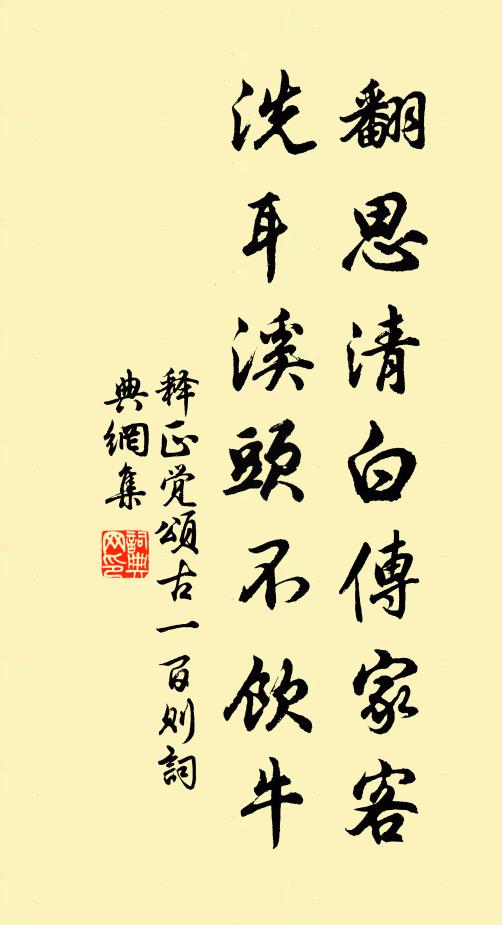 翻思清白傳家客
洗耳溪頭不飲牛
释正觉頌古一百则詞
典網集
詞典网印